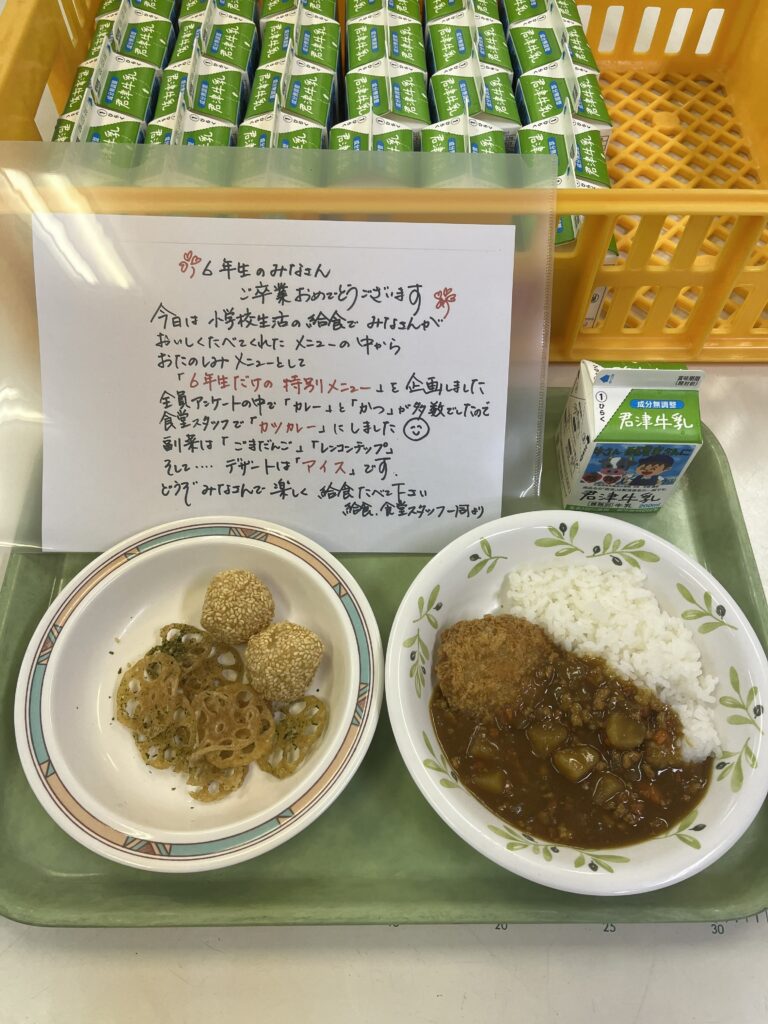 君津牛乳
6年生のみなさん
ご卒業おめでとうございます
今日は 小学校生活の給食で みなさんが
おいしくたべてくれた メニューの中から
おたのしみ メニューとして
「6年生だけの 特別メニュー」を 企画しました
全員アンケートの中で「カレー」と「かつ」が多数でしたので
食堂スタッフで「カツカレー」にしました
副菜は「ごまだんご」「レンコンチップ」
そして‥‥ デザートは「アイス」です.
どうぞ みなさんで 楽しく 給食 たべて下さい
給食.食堂スタッフ一同より
賞味期限
(開封前)
①ひらく
成分無調整
君津牛乳
君津牛乳
20
25
30